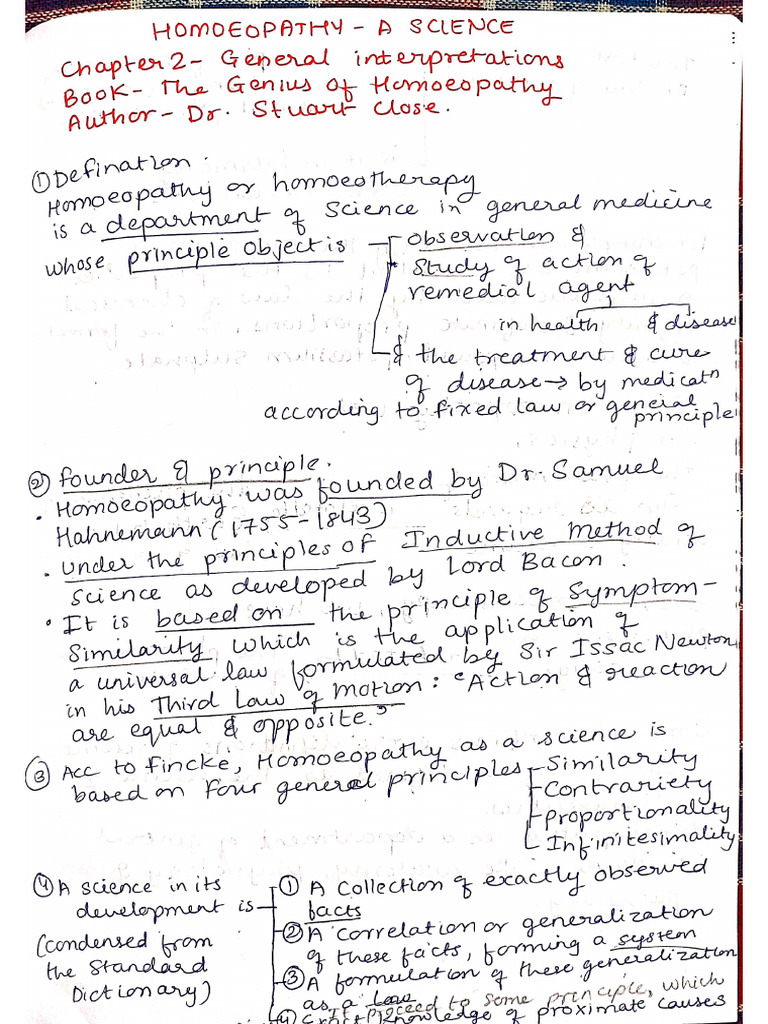 HOMOEOPATHY - A SCIENCE
Chapter 2 - General interpretations
Book - The Genius Of Homoeopathy
Author - Dr. Stuart Close.
① Defination :
Homoeopathy or homoeotherapy
is a department of Science in general medicine
whose principle object is
observation &
Study of action of
remedial agent
in health & disease
& the treatment & cure
of disease → by medicatⁿ
according to fixed law or general
principle
② founder & principle.
• Homoeopathy was founded by Dr. Samuel
Hahnemann (1755-1843)
• under the principles of Inductive Method of
Science as developed by Lord Bacon.
• It is based on the principle of Symptom-
Similarity which is the application of
a universal law formulated by Sir Issac Newton
in his Third Law of Motion : "Action & reaction
are equal & opposite."
③ Acc to Fincke, Homoeopathy as a science is
based on four general principles
Similarity
Contrariety
Proportionality
Infinitesimality
④ A science in its
development is
(condensed from
the Standard
Dictionary)
① A Collection of exactly observed
facts
② A correlation or generalization
of these facts, forming a system
③ A formulation of these generalization
as a Law
It proceed to some principle, which
④ Exact knowledge of proximate causes